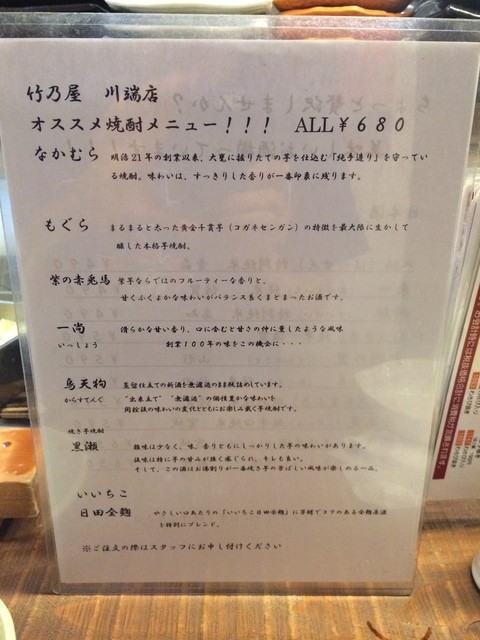 竹乃屋　川端店
オススメ焼酎メニュー！！！　ALL￥６８０
なかむら　明治21年の創業以来、大甕に掘りたての芋を仕込む「純手造り」を守ってい
る焼酎。味わいは、すっきりした香りが一番印象に残ります。
もぐら　まるまると太った黄金千貫芋（コガネセンガン）の特徴を最大限に生かして
醸した本格芋焼酎。
紫の赤兎馬　紫芋ならではのフルーティーな香りと、
甘くふくよかな味わいがバランス良くまとまったお酒です。
一尚　滑らかな甘い香り、口に含むと甘さの仲に凛としたような風味
いっしょう　創業１００年の味をこの機会に・・・
烏天狗　直留仕立ての新酒を無濾過のまま瓶詰めしています。
からすてんぐ　“出来立て”“無濾過”の個性豊かな味わいを
開栓後の味わいの変化とともにお楽しみ戴く芋焼酎です。
焼き芋焼酎
黒瀬　雑味は少なく、味、香りともにしっかりした芋の味わいがあります。
後味は特に芋の甘みが強く感じられ、キレも良い。
そして、この酒はお湯割りが一番焼き芋の芳ばしい風味が楽しめる一品。
いいちこ
日田全麹　やさしい口あたりの「いいちこ日田全麹」に芳醇でコクのある全麹原酒
を特別にブレンド。
※ご注文の際はスタッフにお申し付けください